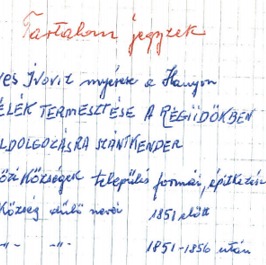 Tartalom jegyzék
a Hangon
ÉLÉK TERMESZTÉSE A RÉGI IDŐKBEN
LDOLGOZÁSRA SZÁNT KENDER
özi Községek település formái, építkezése
Község dülő nevei 1851 előtt
-"- -"- 1851-1856 után